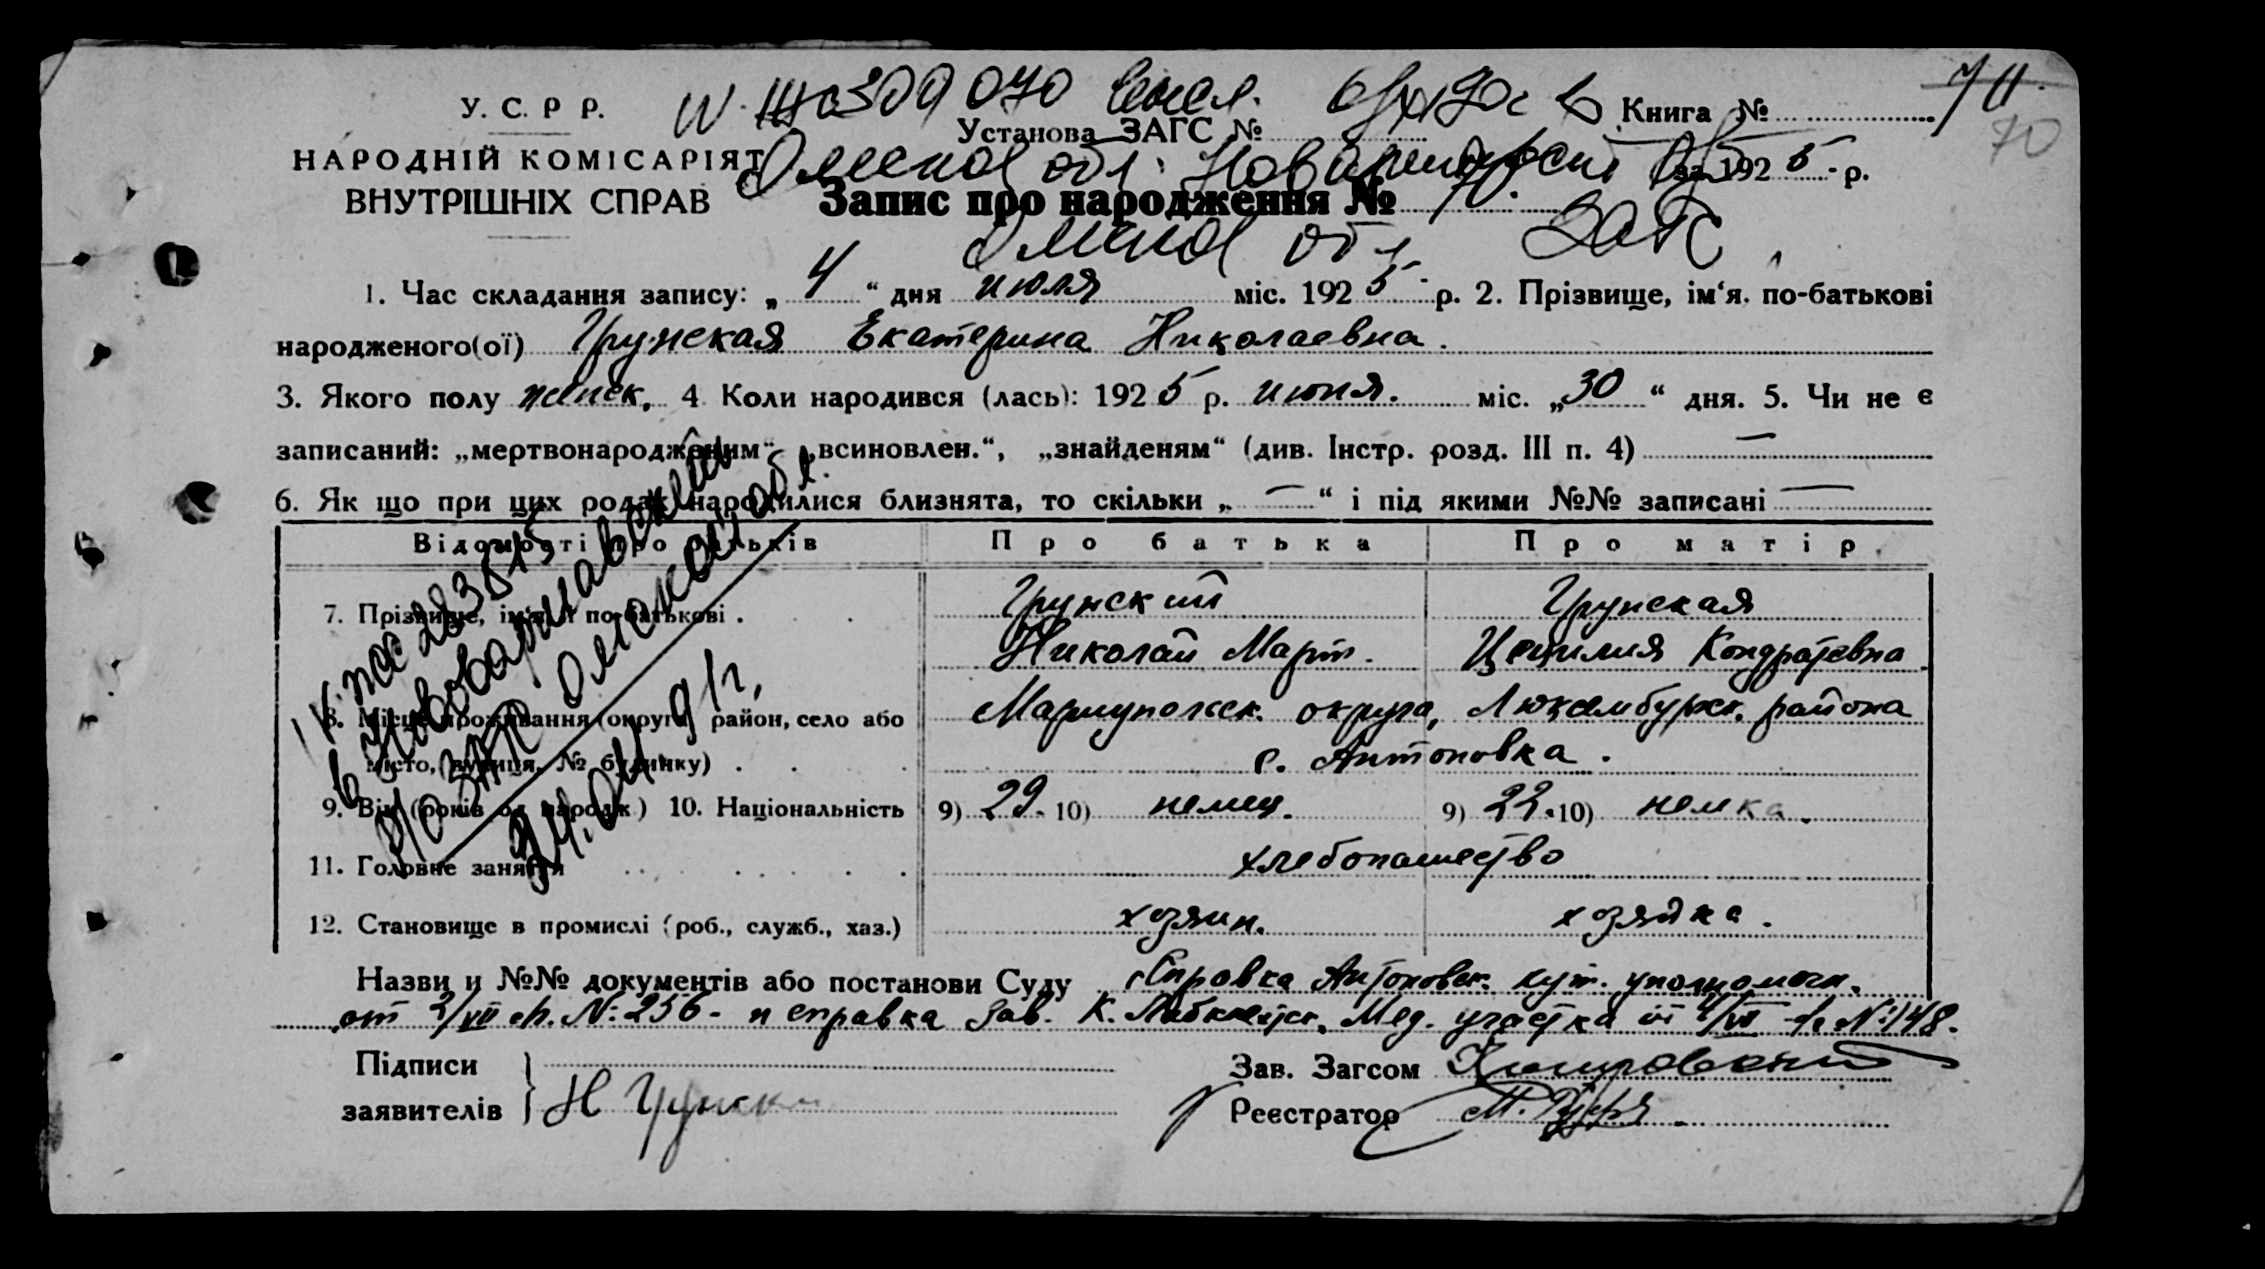 У. С. Р Р.
НАРОДНІЙ КОМІСАРІЯТ
ВНУТРІШНІХ СПРАВ
309070
Установа ЗАГС №
Книга №
70
Омской обл.
за 1925 р.
Запис про народження № 70.
Омской обл ЗАГС
1. Час складання запису: „4“ дня июля міс. 1925 р. 2. Прізвище, ім‘я, по-батькові
народженого(ої) Грунская Екатерина Николаевна.
3. Якого полу женск. 4 Коли народився (лась): 1925 р. июня. міс. „30“ дня. 5. Чи не є
записаний: „мертвонародженим“, „всиновлен.“, „знайденям“ (див. Інстр. розд. III п. 4) —
6. Як що при цих родах народилися близнята, то скільки „—“ і під якими №№ записані —
Відомості про батьків Про батька Про матір.
7. Прізвище, ім‘я й по-батькові . Грунский Грунская
Николай Март. Цецилия Кондратевна
8. Місце проживання (округа, район, село або Мариупольск. округа, Люксембургск. района
місто, вулиця, № будинку) с. Антоновка.
9. Вік (років од народж.) 10. Національність 9) 29. 10) немец. 9) 22. 10) немка.
11. Головне заняття хлебопашество
12. Становище в промислі (роб., служб., хаз.) хозяин. хозяйка.
283515
в Нововаршавском
р/о ЗАГС Омской обл.
24.04.91г.
Назви и №№ документів або постанови Суду Справка Антоновск. упольномоч.
от 2/VII № 256 - и справка Зав. Мед. участка № 148.
Підписи
заявителів Н Грунски
Зав. Загсом
Реєстратор